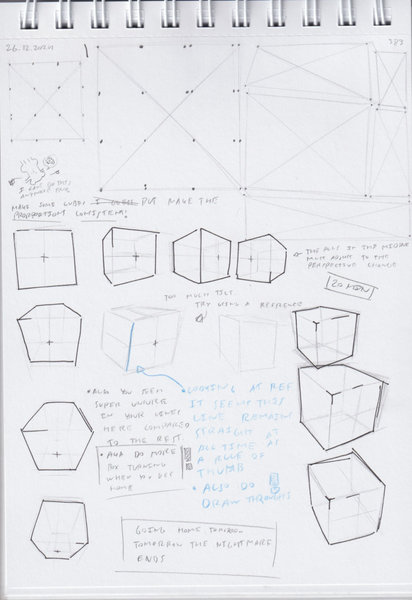 26.12.2024
383
I CAN'T DO THIS
ANYMORE MAN
MAKE SOME CUBES I GUESS BUT MAKE THE
PROPORTIONS CONSISTENT
THE PLUS IN THE MIDDLE
MUST ADJUST TO THE
PERSPECTIVE CHANGE
20 MIN
TOO MUCH TILT
TRY USING A REFERENCE
• ALSO YOU SEEM
SUPER UNSURE
IN YOUR LINES
HERE COMPARED
TO THE REST
• ALSO DO MORE
BOX TURNING
WHEN YOU GET
HOME
• LOOKING AT REF
IT SEEMS THIS
LINE REMAINS
STRAIGHT AT
ALL TIME AS
A RULE OF
THUMB
• ALSO DO
DRAW THROUGHS
GOING HOME TOMORROW
TOMORROW THE NIGHTMARE
ENDS